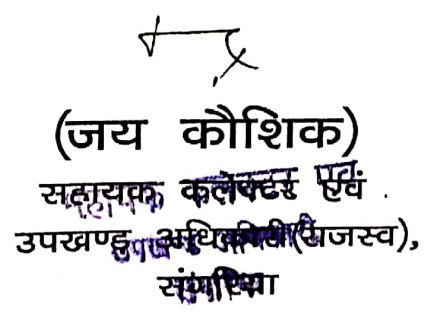 (जय कौशिक)
सहायक कलेक्टर एवं
उपखण्ड अधिकारी(राजस्व),
संगरिया